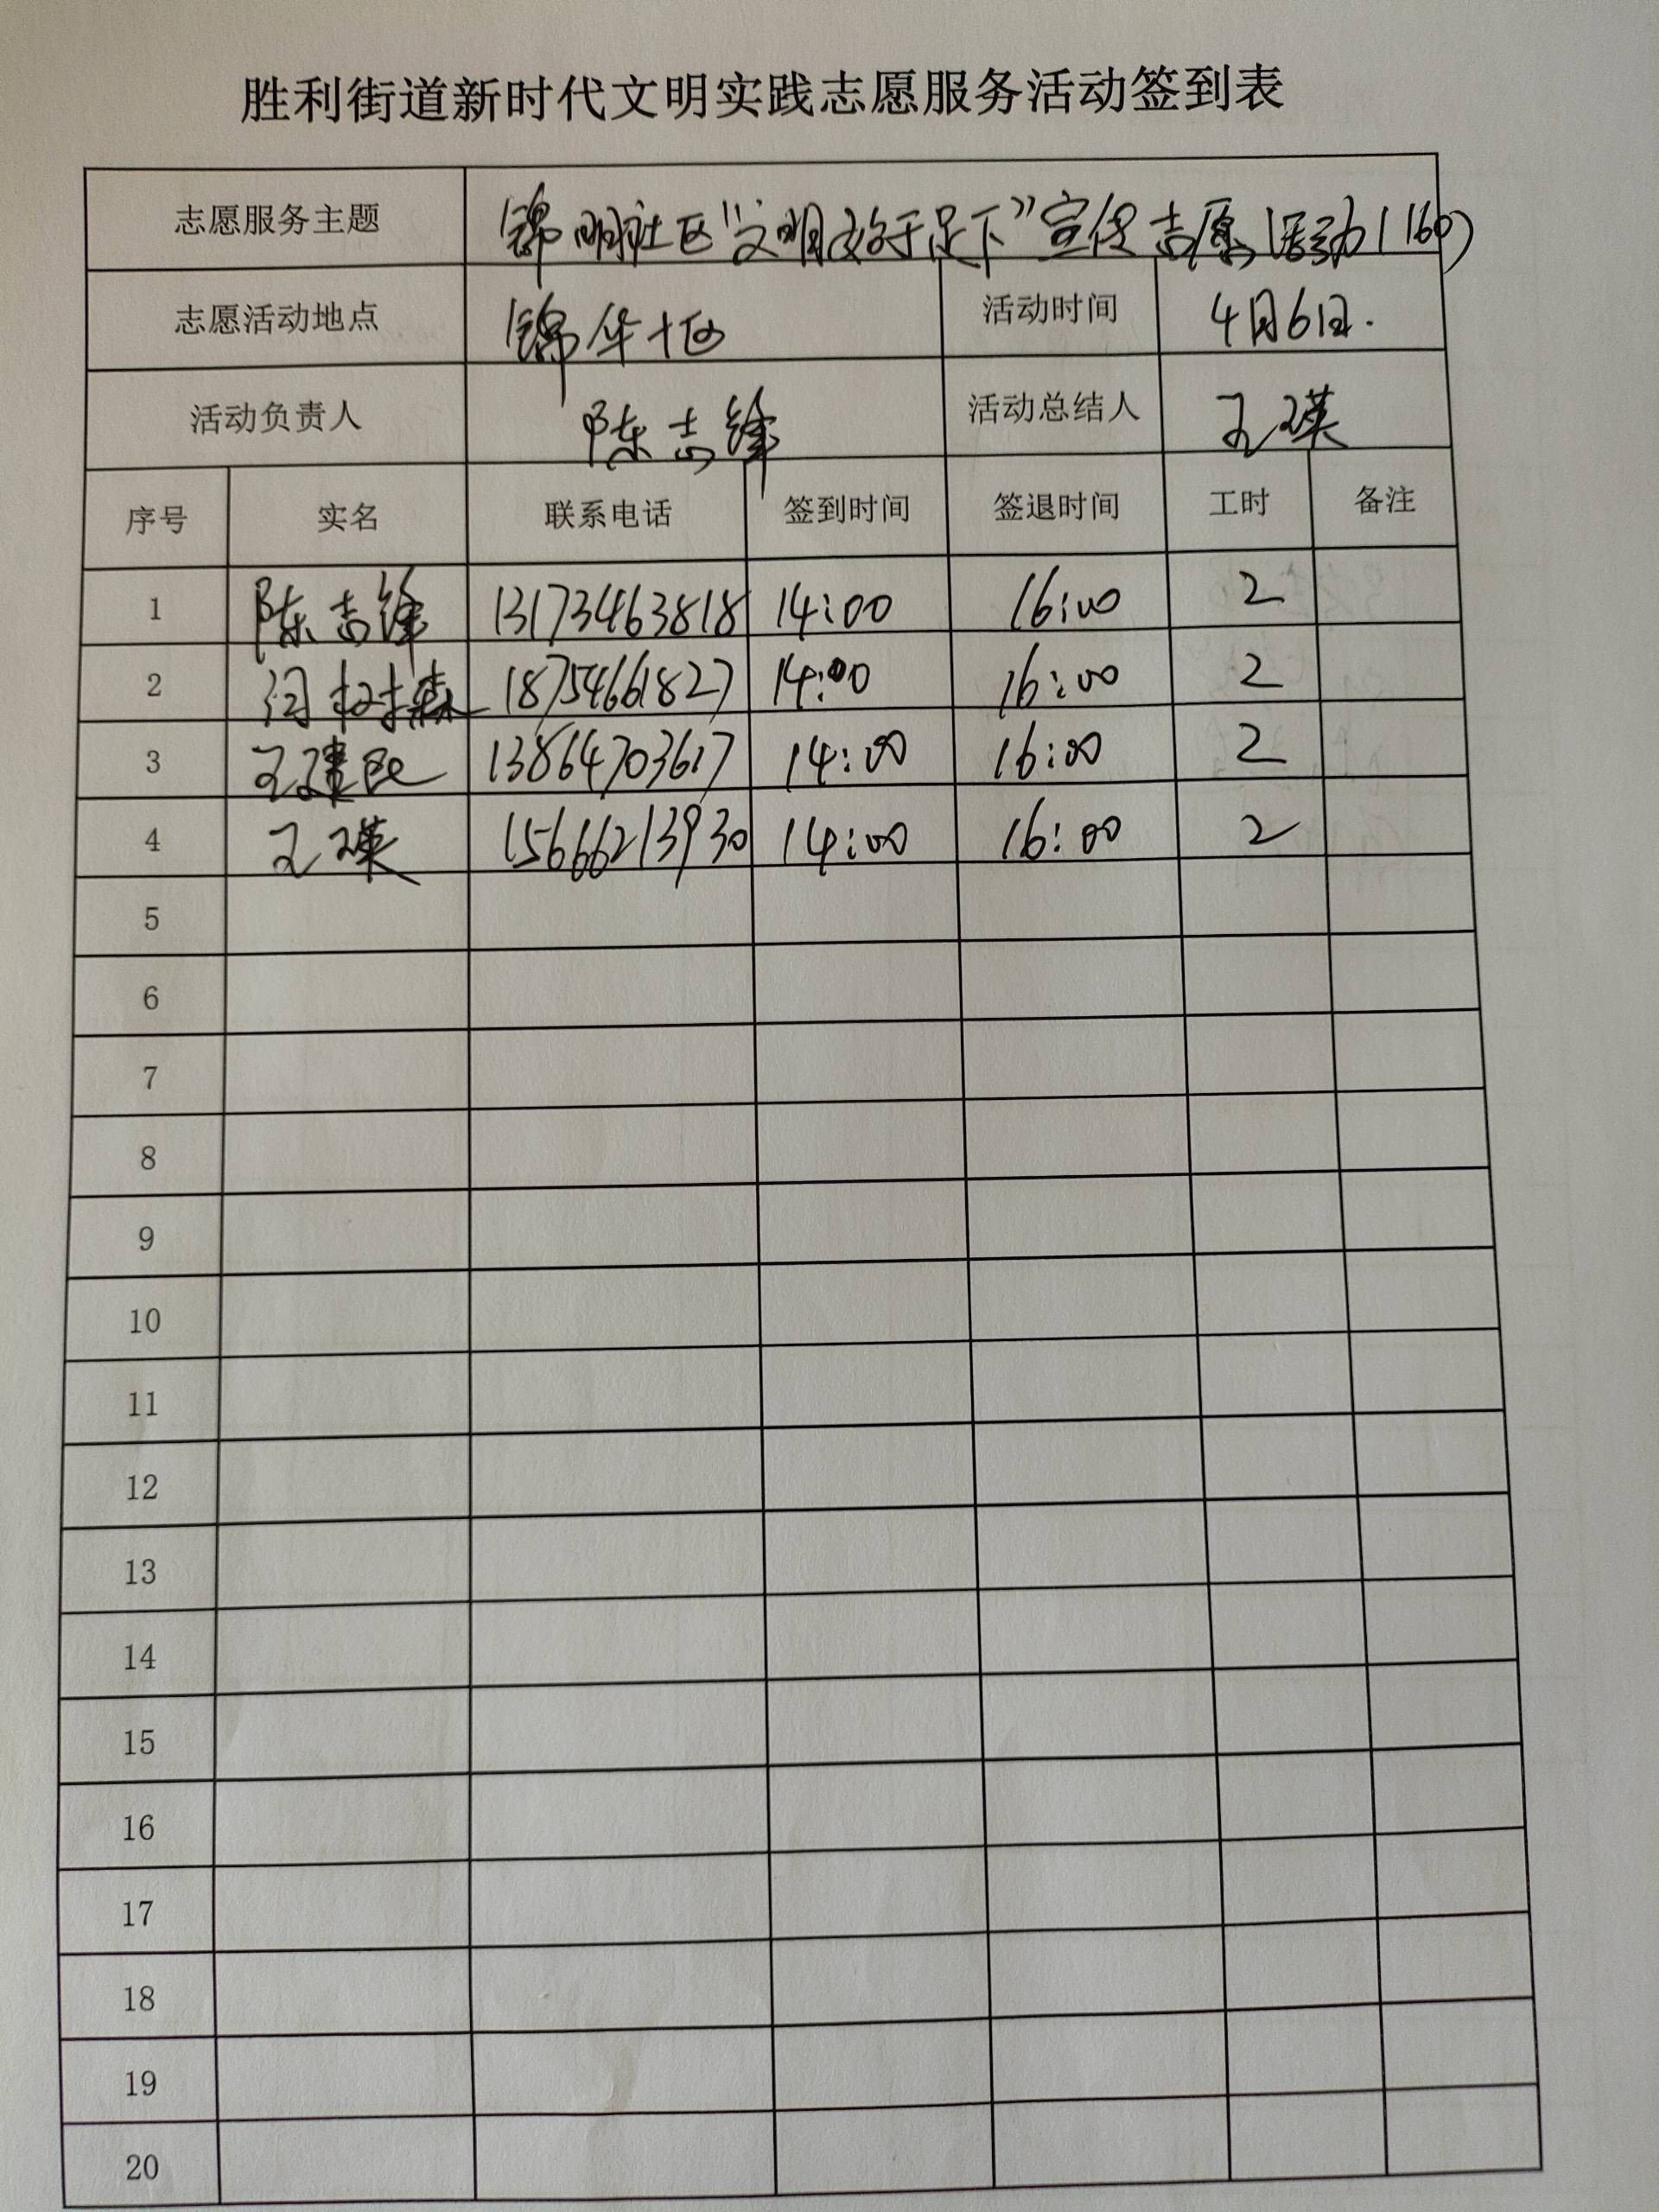 胜利街道新时代文明实践志愿服务活动签到表
志愿服务主题 锦明社区“文明始于足下”宣传志愿活动(160)
志愿活动地点 锦华十区 活动时间 4月6日.
活动负责人 陈志锋 活动总结人 王瑛
序号 实名 联系电话 签到时间 签退时间 工时 备注
1 陈志锋 13173463818 14:00 16:00 2
2 闫树森 18754661827 14:00 16:00 2
3 王建民 13864703617 14:00 16:00 2
4 王瑛 15666213930 14:00 16:00 2
5
6
7
8
9
10
11
12
13
14
15
16
17
18
19
20